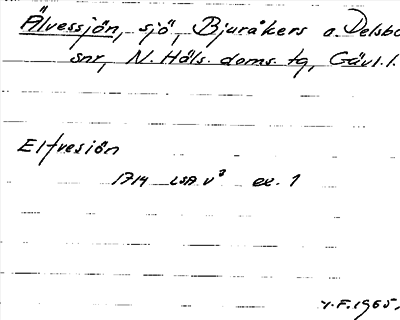 Älvessjön, sjö, Bjuråkers o. Delsbo
snr, N. Häls. doms. tg, Gävl. l.
Elfvesiön
1714 LSA V³ ex. 1
Y.F. 1965.